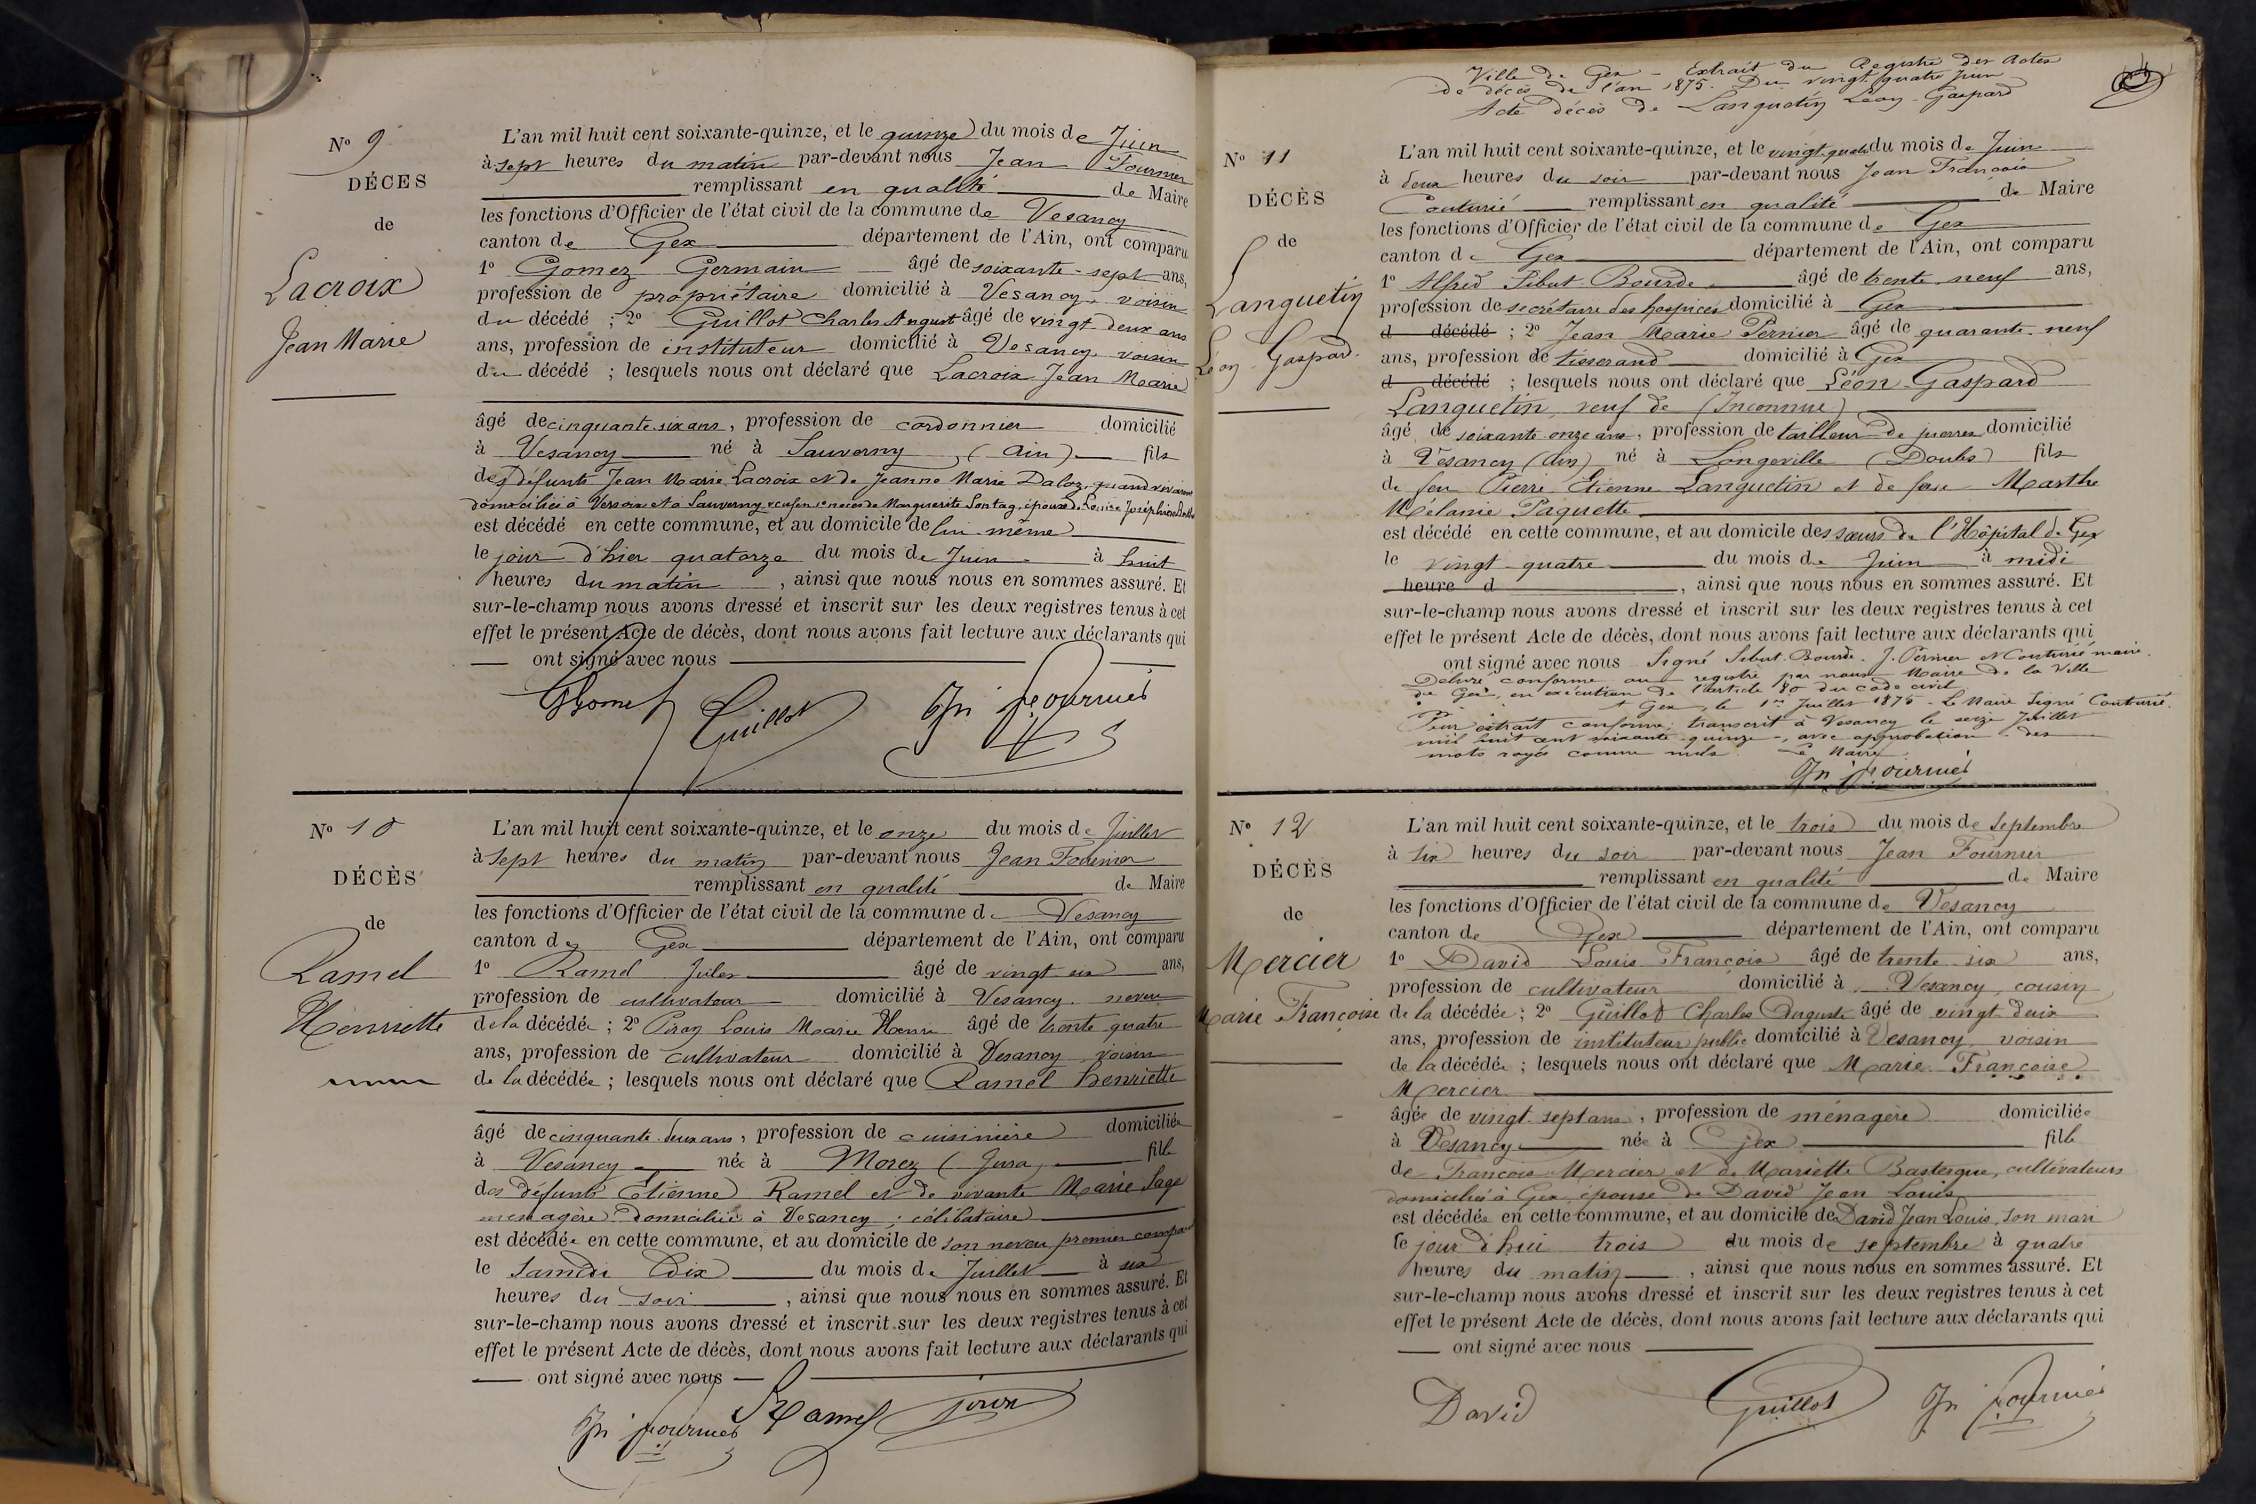 Nº 9
DÉCES
de
Lacroix
Jean Marie
L'an mil huit cent soixante-quinze, et le quinze du mois de Juin
à sept heures du matin par-devant nous Jean Fournier
remplissant en qualité de Maire
les fonctions d'Officier de l'état civil de la commune de Vesancy
canton de Gex département de l'Ain, ont comparu
1º Gomez Germain âgé de soixante-sept ans,
profession de propriétaire domicilié à Vesancy, voisin
du décédé ; 2º Guillot Charles August âgé de vingt deux ans
ans, profession de instituteur domicilié à Vesancy, voisin
du décédé ; lesquels nous ont déclaré que Lacroix Jean Marie
âgé de cinquante six ans, profession de cordonnier domicilié
à Vesancy né à Sauverny (Ain) fils
des défunts Jean Marie Lacroix et de Jeanne Marie Daloz, quand vivaient
domiciliés à Versoix et à Sauverny, veuf en 1e noces de Marguerite Sontag, époux de Louise Joséphine
est décédé en cette commune, et au domicile de lui-même
le jour d'hier quatorze du mois de Juin à huit
heures du matin, ainsi que nous nous en sommes assuré. Et
sur-le-champ nous avons dressé et inscrit sur les deux registres tenus à cet
effet le présent Acte de décès, dont nous avons fait lecture aux déclarants qui
ont signé avec nous
Guillot Jn Fournier
Nº 10
DÉCÈS
de
Ramel
Henriette
L'an mil huit cent soixante-quinze, et le onze du mois de Juillet
à sept heures du matin par-devant nous Jean Fournier
remplissant en qualité de Maire
les fonctions d'Officier de l'état civil de la commune de Vesancy
canton de Gex département de l'Ain, ont comparu
1º Ramel Jules âgé de vingt six ans,
profession de cultivateur domicilié à Vesancy, neveu
de la décédée ; 2º Piroz Louis Marie Henri âgé de trente quatre
ans, profession de cultivateur domicilié à Vesancy, voisin
de la décédée ; lesquels nous ont déclaré que Ramel henriette
âgé de cinquante deux ans, profession de cuisinière domiciliée
à Vesancy née à Morez (Jura) fille
des défunts Etienne Ramel et de vivante Marie Sage
ménagère domiciliée à Vesancy ; célibataire
est décédée en cette commune, et au domicile de son neveu premier comparant
le samedi dix du mois de Juillet à six
heures du soir, ainsi que nous nous en sommes assuré. Et
sur-le-champ nous avons dressé et inscrit sur les deux registres tenus à cet
effet le présent Acte de décès, dont nous avons fait lecture aux déclarants qui
ont signé avec nous
Jn Fournier Ramel
Ville de Gex - Extrait du Registre des Actes
de décès de l'an 1875. Du vingt quatre Juin
Acte décès de Languetin Léon-Gaspard
Nº 11
DÉCÈS
de
Languetin
Léon-Gaspard.
L'an mil huit cent soixante-quinze, et le vingt quatre du mois de Juin
à deux heures du soir par-devant nous Jean François
Couturié remplissant en qualité de Maire
les fonctions d'Officier de l'état civil de la commune de Gex
canton de Gex département de l'Ain, ont comparu
1º Alfred Sibut-Bourde âgé de trente-neuf ans,
profession de secrétaire des hospices domicilié à Gex
d décédé ; 2º Jean Marie Pernier âgé de quarante-neuf
ans, profession de tisserand domicilié à Gex
d décédé ; lesquels nous ont déclaré que Léon-Gaspard
Languetin, veuf de (Inconnue)
âgé de soixante onze ans, profession de tailleur de pierres domicilié
à Vesancy (Ain) né à Longeville (Doubs) fils
de feu Pierre Etienne Languetin et de feue Marthe
Mélanie Paquette
est décédé en cette commune, et au domicile des sœurs de l'Hôpital de Gex
le vingt-quatre du mois de Juin à midi
heure d, ainsi que nous nous en sommes assuré. Et
sur-le-champ nous avons dressé et inscrit sur les deux registres tenus à cet
effet le présent Acte de décès, dont nous avons fait lecture aux déclarants qui
ont signé avec nous Signé Sibut-Bourde. J. Pernier et Couturié maire.
Délivré conforme au registre par nous Maire de la Ville
de Gex, en exécution de l'article 80 du code civil
A Gex, le 1er Juillet 1875 - Le Maire Signé Couturié.
Pour extrait conforme transcrit à Vesancy le seize Juillet
mil huit cent soixante-quinze, avec approbation des
mots rayés comme nuls. Le Maire
Jn Fournier
Nº 12
DÉCÈS
de
Mercier
Marie Françoise
L'an mil huit cent soixante-quinze, et le trois du mois de septembre
à six heures du soir par-devant nous Jean Fournier
remplissant en qualité de Maire
les fonctions d'Officier de l'état civil de la commune de Vesancy
canton de Gex département de l'Ain, ont comparu
1º David Louis François âgé de trente six ans,
profession de cultivateur domicilié à Vesancy, cousin
de la décédée ; 2º Guillot Charles Auguste âgé de vingt deux
ans, profession de instituteur public domicilié à Vesancy, voisin
de la décédée ; lesquels nous ont déclaré que Marie Françoise
Mercier
âgée de vingt sept ans, profession de ménagère domiciliée
à Vesancy née à Gex fille
de François Mercier et de Mariette Bastergue, cultivateurs
domiciliés à Gex, épouse de David Jean Louis
est décédée en cette commune, et au domicile de David Jean Louis, son mari
le jour d'hui trois du mois de septembre à quatre
heures du matin, ainsi que nous nous en sommes assuré. Et
sur-le-champ nous avons dressé et inscrit sur les deux registres tenus à cet
effet le présent Acte de décès, dont nous avons fait lecture aux déclarants qui
ont signé avec nous
David Guillot Jn Fournier